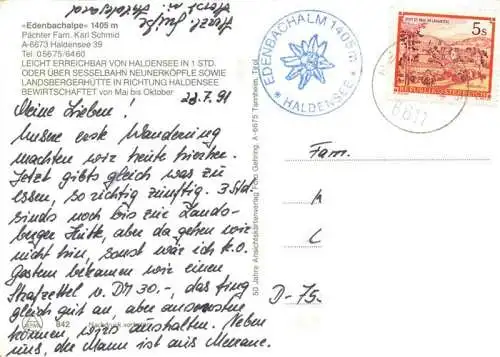 «Edenbachalpe» 1405 m
Pächter Fam. Karl Schmid
A-6673 Haldensee 39
Tel 05675/6460
LEICHT ERREICHBAR VON HALDENSEE IN 1 STD.
ODER ÜBER SESSELBAHN NEUNERKÖPFLE SOWIE
LANDSBERGERHÜTTE IN RICHTUNG HALDENSEE
BEWIRTSCHAFTET von Mai bis Oktober
28.7.91
Meine Lieben!
Unsere erste Wanderung
machten wir heute hierher.
Jetzt gibts gleich was zu
essen, so richtig zünftig. 3 Std.
sinds noch bis zur Lands-
berger Hütte, aber da gehen wir
nicht hin, sonst wär ich k.o.
Gestern bekamen wir einen
Strafzettel v. DM 30.-, das fing
gleich gut an, aber ansonsten
können wirs aushalten. Neben
uns, die Mann ist aus
842
Nachdruck verboten
50 Jahre Ansichtskartenverlag Foto Gehring, A-6675 Tannheim, Tirol
EDENBACHALM 1405 m
* HALDENSEE *
5s
REPUBLIK ÖSTERREICH
Fam.
M
L
D-75